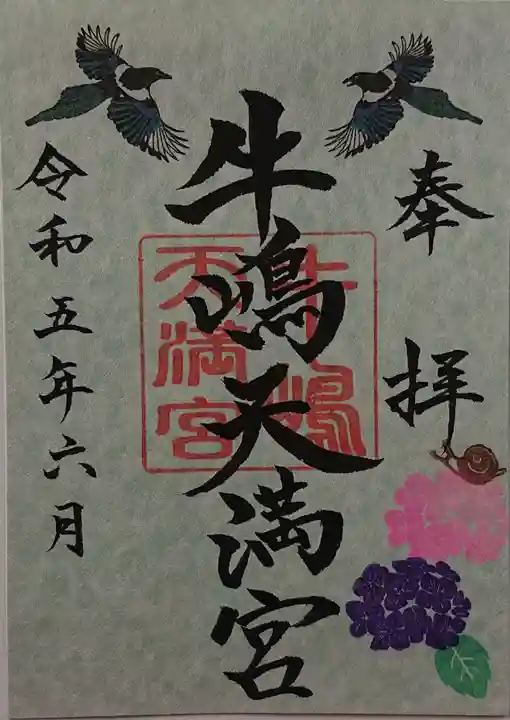 奉拝
牛嶋天満宮
牛嶋天満宮
令和五年六月